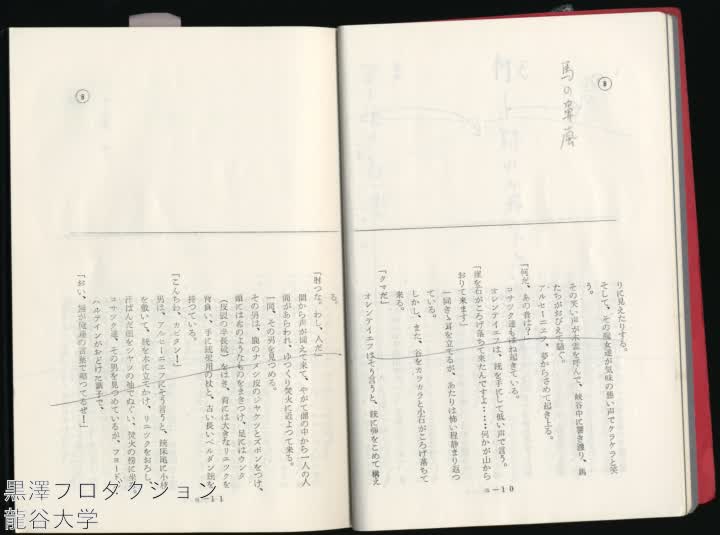 馬の鼻
りに見えたりする。
そして、その魔女達が気味の悪い声でケラケラと笑
う。
その笑い声が木霊を呼んで、峡谷中に響き渡り、馬
たちがおびえて騒ぐ。
アルセーニエフ、夢からさめて起き上る。
「何だ、あの音は?」
コサック達もはね起きている。
オレンテイエフは、銃を手にして低い声で言う。
「崖を石がころげ落ちて来たんですよ……何かが山から
おりて来ます」
一同きき耳を立てるが、あたりは怖い程静まり返つ
ている。
しかし、また、谷をカラカラと小石がころげ落ちて
来る。
「クマだ」
オレンテイエフはそう言うと、銃に弾をこめて構え
ｇ－10
る。
「射つな。わし、人だ」
闇から声が聞えて来て、やがて闇の中から一人の人
間があらわれ、ゆつくり焚火に近よつて来る。
一同、その男を見つめる。
その男は、鹿のナメシ皮のジヤケツとズボンをつけ、
頭には布のようなものをまきつけ、足にはウンタ
をはき、背には大きなリユツクを
背負い、手に銃架用の杖と、古い長いベルダン銃を
持つている。
「こんちわ、カピタン!」
男は、アルセーニエフにそう言うと、
銃を木に立てかけ、リユツクをおろし、
汗ばんだ顔をシヤツの袖でぬぐい、焚火の傍に坐る。
コサック達、その男を見つめているが、
ハルテインがおどけた調子で、
黒澤プロダクション
龍谷大学